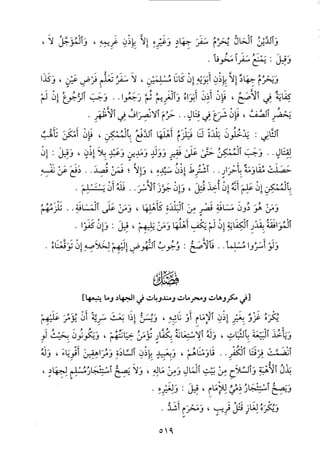 وَالدَّيْنُ الْحَالُّ يُحَرِّمُ سَفَرَ جِهَادٍ وَغَيْرِهِ إِلاَّ بِإِذْنِ غَرِيمِهِ ، وَالْمُؤَجَّلُ لاَ ،
وَقِيلَ : يَمْنَعُ سَفَراً مَخُوفاً .
وَيَحْرُمُ جِهَادٌ إِلاَّ بِإِذْنِ أَبَوَيْهِ إِنْ كَانَا مُسْلِمَيْنِ ، لاَ سَفَرُ تَعَلُّمِ فَرْضِ عَيْنٍ ، وَكَذَا
كِفَايَةٍ فِي الأَصَحِّ ، فَإِنْ أَذِنَ أَبَوَاهُ وَالْغَرِيمُ ثُمَّ رَجَعُوا.. وَجَبَ الرُّجُوعُ إِنْ لَمْ
يَحْضُرِ الصَّفَّ ، فَإِنْ شَرَعَ فِي قِتَالٍ.. حَرُمَ الاِنْصِرَافُ فِي الأَظْهَرِ .
الثَّانِي : يَدْخُلُونَ بَلْدَةً لَنَا فَيَلْزَمُ أَهْلَهَا الدَّفْعُ بِالْمُمْكِنِ ، فَإِنْ أَمْكَنَ تَأَهُّبٌ
لِقِتَالٍ.. وَجَبَ الْمُمْكِنُ حَتَّى عَلَى فَقِيرٍ وَوَلَدٍ وَمَدِينٍ وَعَبْدٍ بِلاَ إِذْنٍ ، وَقِيلَ : إِنْ
حَصَلَتْ مُقَاوَمَةٌ بِأَحْرَارٍ.. اشْتُرِطَ إِذْنُ سَيِّدِهِ ، وَإِلاَّ ؛ فَمَنْ قُصِدَ.. دَفَعَ عَنْ نَفْسِهِ
بِالْمُمْكِنِ إِنْ عَلِمَ أَنَّهُ إِنْ أُخِذَ قُتِلَ ، وَإِنْ جَوَّزَ الأَسْرَ.. فَلَهُ أَنْ يَسْتَسْلِمَ .
وَمَنْ هُوَ دُونَ مَسَافَةِ قَصْرٍ مِنَ الْبَلْدَةِ كَأَهْلِهَا ، وَمَنْ عَلَى الْمَسَافَةِ.. تَلْزَمُهُمُ
الْمُوَافَقَةُ بِقَدْرِ الْكِفَايَةِ إِنْ لَمْ يَكْفِ أَهْلُهَا وَمَنْ يَلِيهِمْ ، قِيلَ : وَإِنْ كَفَوْا .
وَلَوْ أَسَرُوا مُسْلِماً.. فَالأَصَحُّ : وُجُوبُ النُّهُوضِ إِلَيْهِمْ لِخَلاَصِهِ إِنْ تَوَقَّعْنَاهُ .
فَصْلٌ
[في مكروهات ومحرمات ومندوبات في الجهاد وما يتبعها]
يُكْرَهُ غَزْوٌ بِغَيْرِ إِذْنِ الإِمَامِ أَوْ نَائِبِهِ ، وَيُسَنُّ إِذَا بَعَثَ سَرِيَّةً أَنْ يُؤَمِّرَ عَلَيْهِمْ
وَيَأْخُذَ الْبَيْعَةَ بِالثَّبَاتِ ، وَلَهُ الاِسْتِعَانَةُ بِكُفَّارٍ تُؤْمَنُ خِيَانَتُهُمْ ، وَيَكُونُونَ بِحَيْثُ لَوِ
انْضَمَّتْ فِرْقَتَا الْكُفْرِ.. قَاوَمْنَاهُمْ ، وَبِعَبِيدٍ بِإِذْنِ السَّادَةِ وَمُرَاهِقِينَ أَقْوِيَاءَ ، وَلَهُ
بَذْلُ الأُهْبَةِ وَالسِّلاَحِ مِنْ بَيْتِ الْمَالِ وَمِنْ مَالِهِ ، وَلاَ يَصِحُّ اسْتِئْجَارُ مُسْلِمٍ لِجِهَادٍ ،
وَيَصِحُّ اسْتِئْجَارُ ذِمِّيٍّ لِلإِمَامِ ، قِيلَ : وَلِغَيْرِهِ .
وَيُكْرَهُ لِغَازٍ قَتْلُ قَرِيبٍ ، وَمَحْرَمٍ أَشَدُّ .
٥١٩